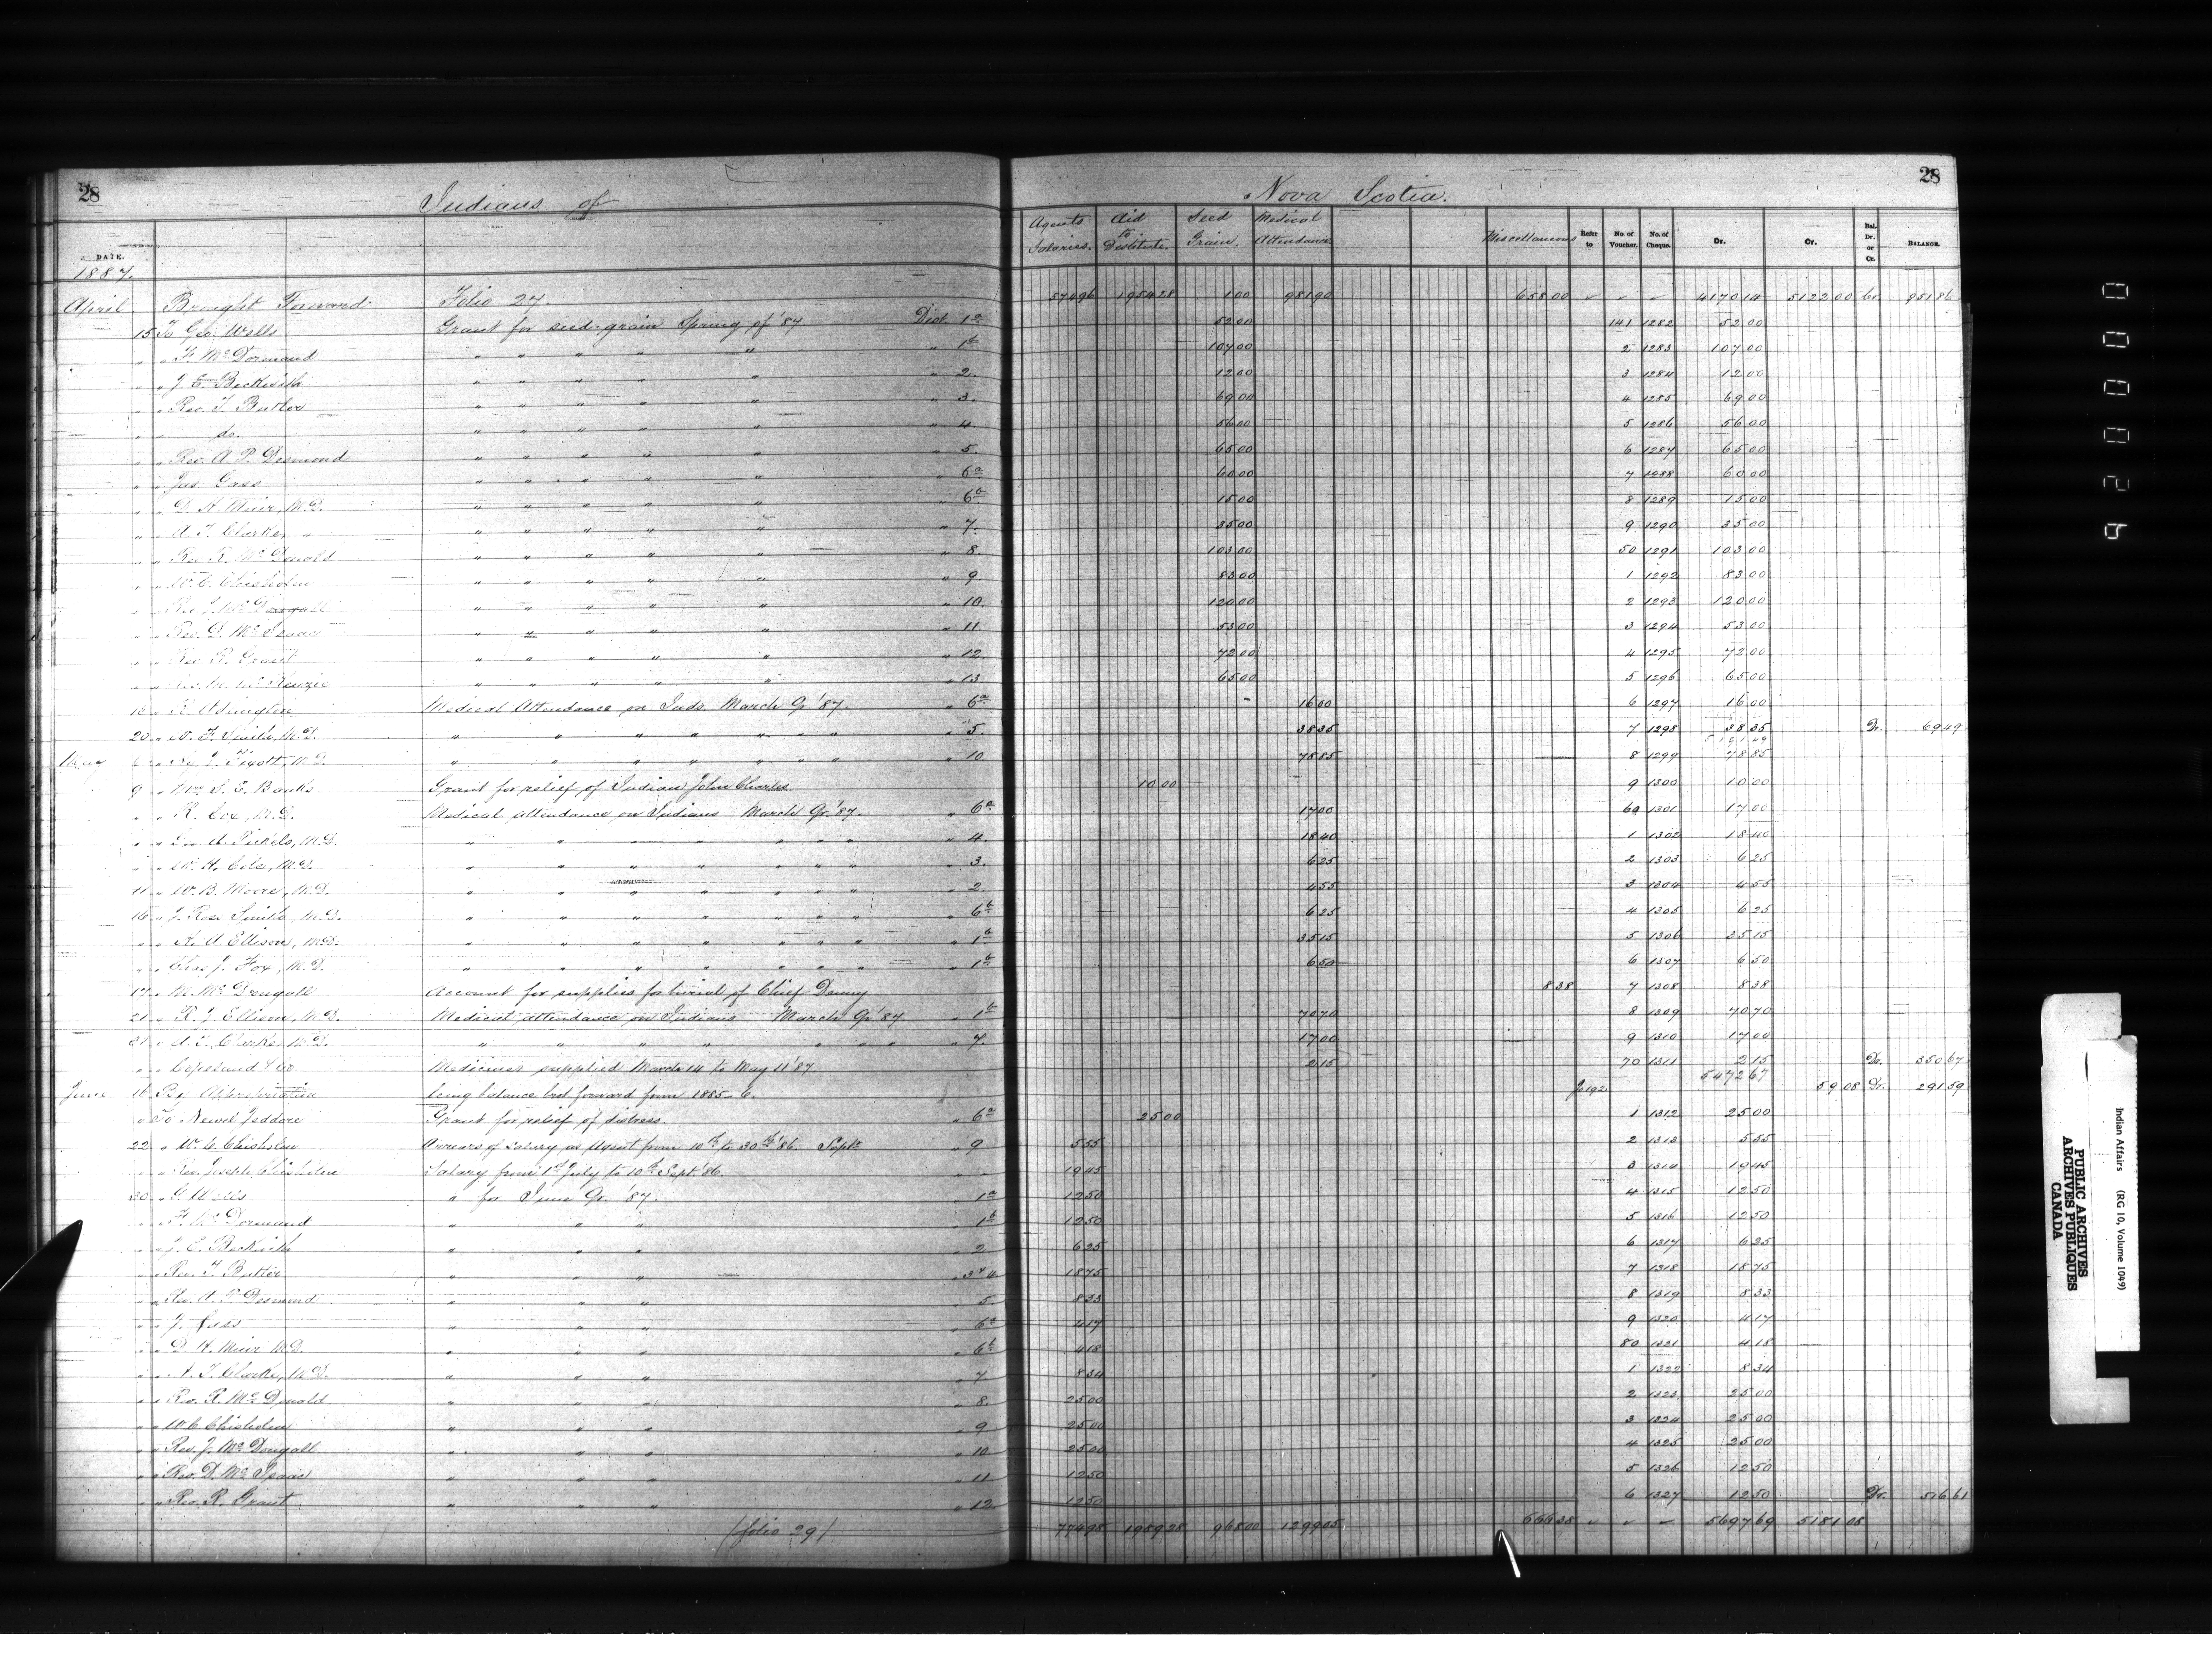 28
Indians of
Nova Scotia.
28
DATE.
Agents Salaries.
Aid to Destitute.
Seed Grain.
Medical Attendance
Miscellaneous
Refer to
No. of Voucher.
No. of Cheque.
Dr.
Cr.
Bal. Dr. or Cr.
BALANCE.
1887.
April Brought Forward Folio 27. 574 96 1954 28 1 00 981 90 658 00 " " " 4170 14 5122 00 Cr. 951 86
15 To Geo. Wells Grant for seed grain Spring of '87 Dist. 1a 52 00 141 1282 52 00
" " F. McDormand " " " " " " 1b 107 00 2 1283 107 00
" " J. E. Beckwith " " " " " " 2. 12 00 3 1284 12 00
" " Rev. T. Butler " " " " " " 3. 69 00 4 1285 69 00
" " do. " " " " " " 4 56 00 5 1286 56 00
" " Rev. A. P. Desmond " " " " " " 5. 65 00 6 1287 65 00
" " Jas. Gass " " " " " " 6a 60 00 7 1288 60 00
" " D. H. Muir, M.D. " " " " " " 6b 15 00 8 1289 15 00
" " A. T. Clarke, " " " " " " " 7. 35 00 9 1290 35 00
" " Rev. R. McDonald " " " " " " 8. 103 00 50 1291 103 00
" " W. C. Chisholm " " " " " " 9. 83 00 1 1292 83 00
" " Rev. J. McDougall " " " " " " 10. 120 00 2 1293 120 00
" " Rev. D. McIsaac " " " " " " 11 53 00 3 1294 53 00
" " Rev. R. Grant " " " " " " 12. 72 00 4 1295 72 00
" " McKenzie " " " " " " 13. 65 00 5 1296 65 00
16 " Medical Attendance on Inds. March Qr. '87. " 6a 16 00 6 1297 16 00
20 " W. F. Smith, M.D. " " " " " " " " 5. 38 35 7 1298 38 35 Dr. 69 49
May M.D. " " " " " " " " 10 78 85 8 1299 78 85
9 " S. E. Banks Grant for relief of Indian John Charles 10 00 9 1300 10 00
" " R. Cox, M.D. Medical attendance on Indians March Qr. '87. " 6a 17 00 60 1301 17 00
" " M.D. " " " " " " " " 4. 18 40 1 1302 18 40
" " W. H. Cole, M.D. " " " " " " " " 3. 6 25 2 1303 6 25
11 " W. B. Moore, M.D. " " " " " " " " 2. 4 55 3 1304 4 55
16 " J. Ross Smith, M.D. " " " " " " " " 6b 6 25 4 1305 6 25
" " A. Ellison, M.D. " " " " " " " " 1b 35 15 5 1306 35 15
" " Chas. J. Fox, M.D. " " " " " " " " 1b 6 50 6 1307 6 50
17 " M. McDougall Account for supplies for burial of Chief Denny 8 38 7 1308 8 38
21 " R. J. Ellison, M.D. Medical attendance on Indians March Qr. '87 " 1b 70 70 8 1309 70 70
31 " A. T. Clarke, M.D. " " " " " " " 7. 17 00 9 1310 17 00
" " Copeland & Co. Medicines supplied March 14 to May 11 '87 2 15 70 1311 2 15 Dr. 350 67
5472 67
June 16 By Appropriation being balance brot forward from 1885-6. 59 08 Dr. 291 59
" To Newel Jeddore Grant for relief of distress. " 6a 25 00 1 1312 25 00
22 " W. C. Chisholm Arrears of salary as Agent from 10th to 30th '86. Sept. " 9 5 55 2 1313 5 55
" " Rev. Joseph Chisholm Salary from 1st July to 10th Sept. '86 " " 19 45 3 1314 19 45
30 " G. Wells " for June Qr. '87. " 1a 12 50 4 1315 12 50
" " F. McDormand " " " " 1b 12 50 5 1316 12 50
" " J. E. Beckwith " " " " 2 6 25 6 1317 6 25
" " Rev. T. Butler " " " " 3 & 4. 18 75 7 1318 18 75
" " Rev. A. P. Desmond " " " " 5. 8 33 8 1319 8 33
" " J. Gass " " " " 6a 4 17 9 1320 4 17
" " D. H. Muir M.D. " " " " 6b 4 18 80 1321 4 18
" " A. T. Clarke, M.D. " " " " 7 8 34 1 1322 8 34
" " Rev. R. McDonald " " " " 8. 25 00 2 1323 25 00
" " W. C. Chisholm " " " " 9 25 00 3 1324 25 00
" " Rev. J. McDougall " " " " 10 25 00 4 1325 25 00
" " Rev. D. McIsaac " " " " 11 12 50 5 1326 12 50
" " Rev. R. Grant " " " " 12. 12 50 6 1327 12 50 Dr. 516 61
(folio 29) 774 98 1989 28 968 00 1299 05 666 38 " " " 5697 69 5181 08
Indian Affairs (RG 10, Volume 1049)
PUBLIC ARCHIVES
ARCHIVES PUBLIQUES
CANADA